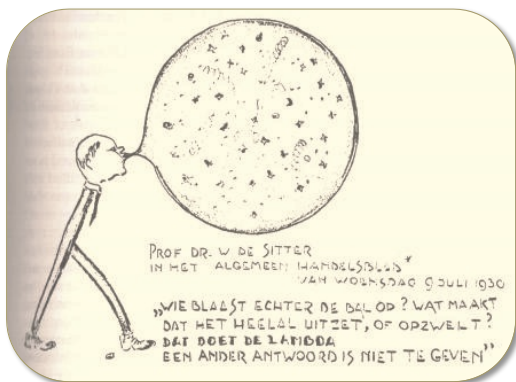 PROF DR. W DE SITTER
IN HET ALGEMEEN HANDELSBLAD"
VAN WOENSDAG 9 JULI 1930
„WIE BLAAST ECHTER DE BAL OP? WAT MAAKT
DAT HET HEELAL UITZET, OF OPZWELT?
DAT DOET DE LAMBDA
EEN ANDER ANTWOORD IS NIET TE GEVEN"